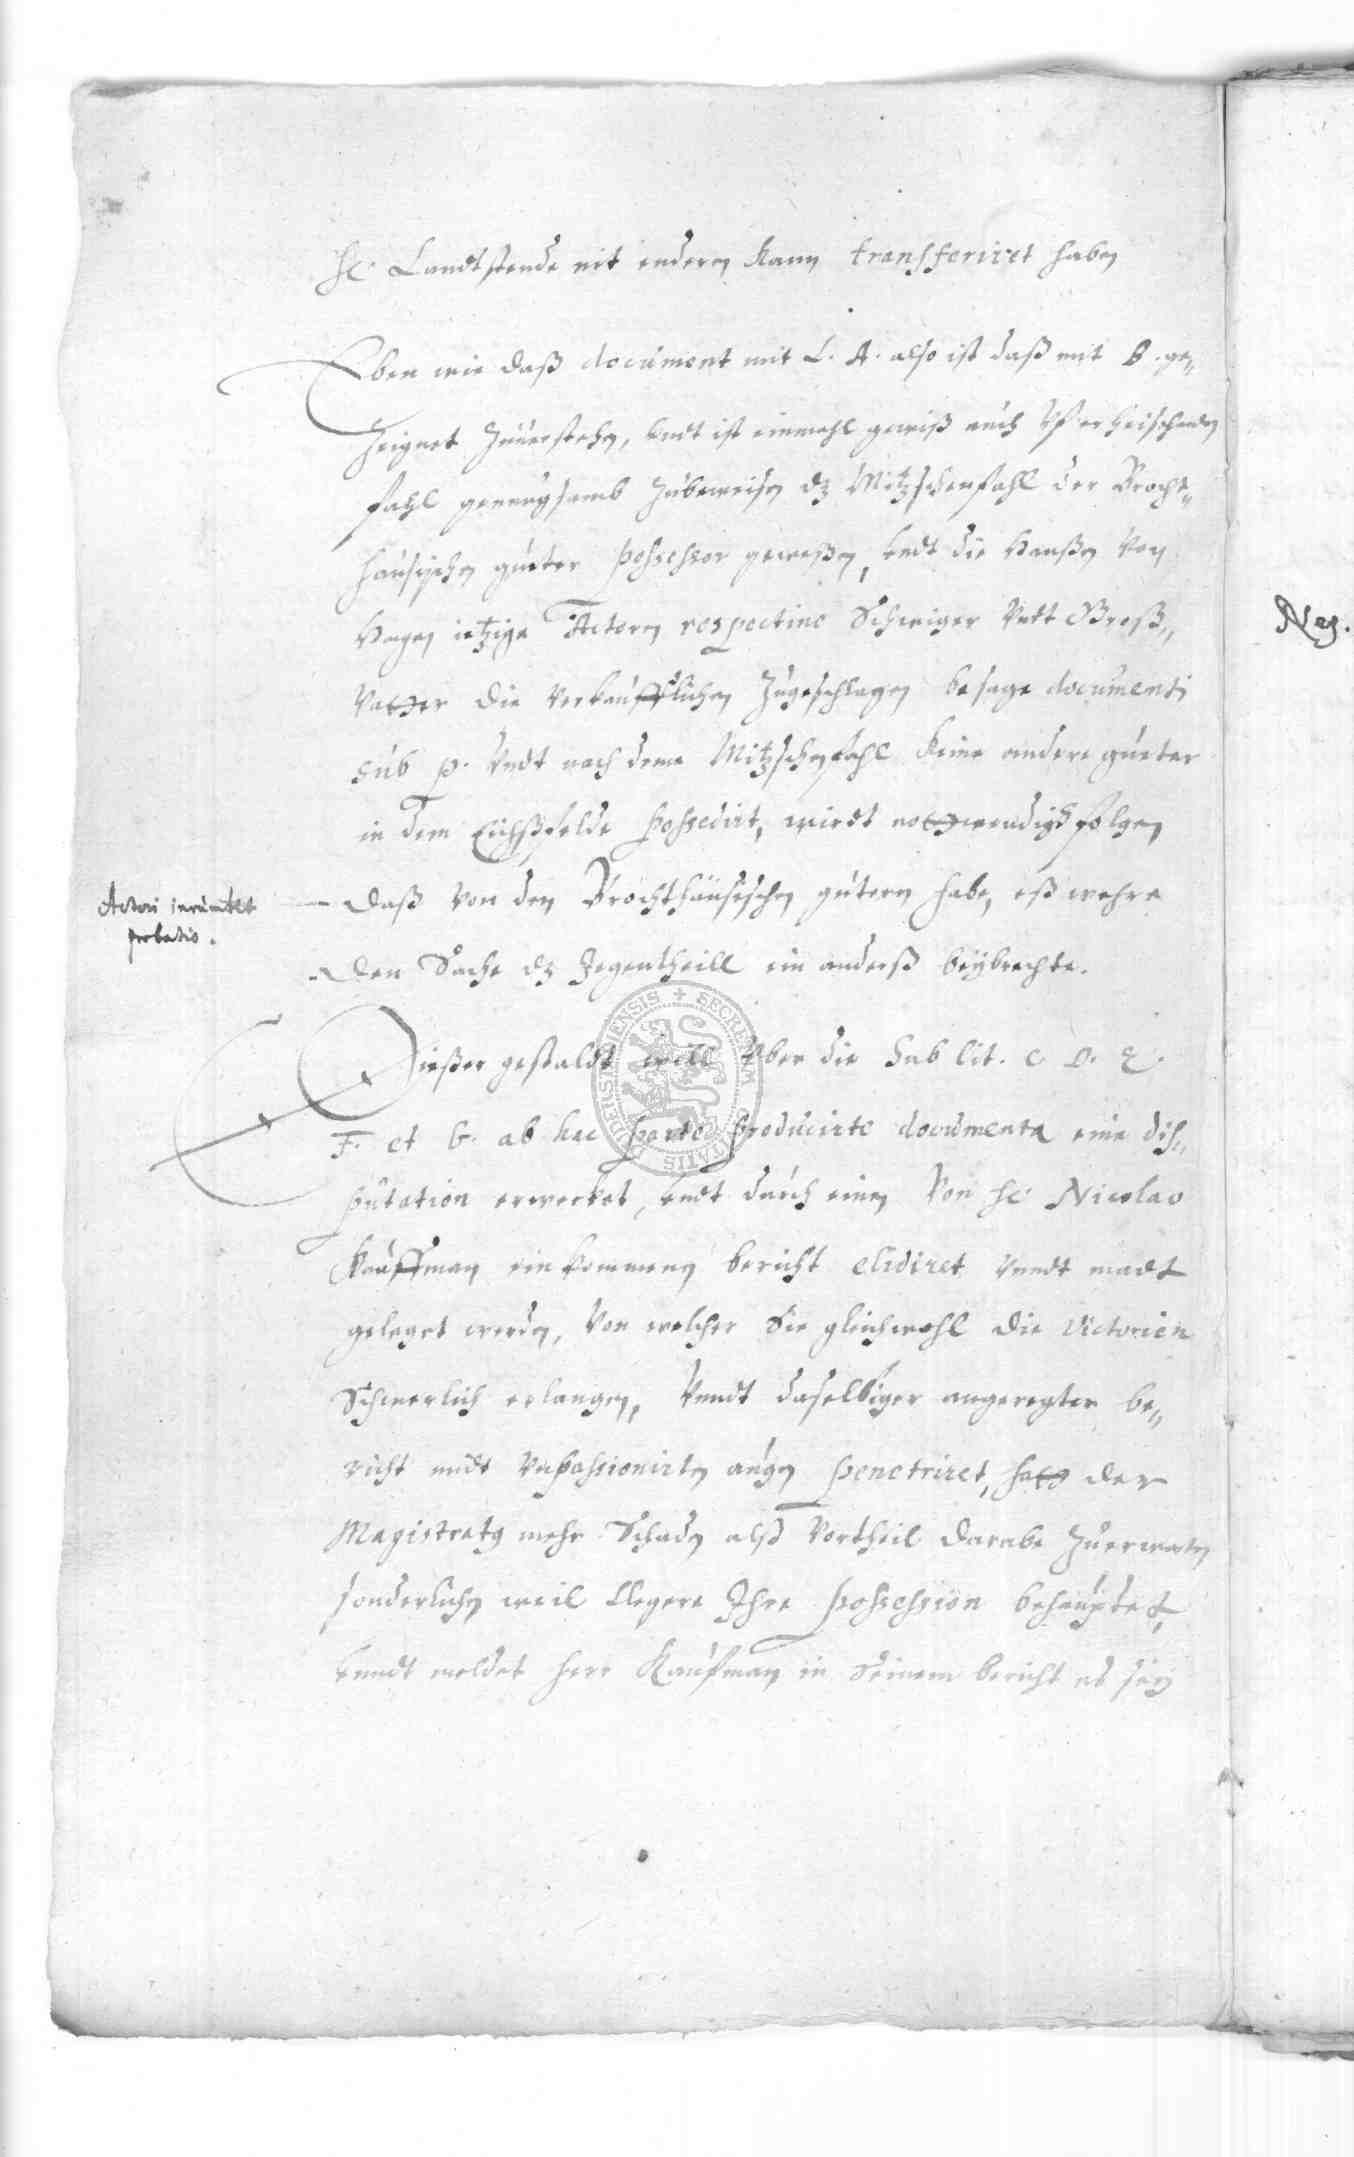 H. Landtstende nit endern kann transferiret haben
Eben wie daß document mit L. A. also ist daß mit B. ge-
Zeignet Zuuerstehen, undt ist einmahl gewiß auch uf erheischenden
fahl genuegsamb Zubeweisen dz Mitzschenfahl der Brocht-
hausischen guetter possessor gewesen, undt die Hansen von
Hagen ietzige Actorn respective Schwiger undt Groß-
Vatter die verkaufflichen Zugeschlagen besage documenti
sub p. Undt nach deme Mitzschenfahl keine andere guetter
in dem Eichßfelde possedirt, wirdt nothwendigh folgen
Actori incumbit
probatio.
daß von den Brochthausischen gütern habe, eß wehre
den Sache dz Iegentheill ein anders beybrechte.
Dießer gestaldt will uber die sub lit. C. D. E.
F. et G. ab hac parte producirte documenta eine dis-
putation erwecket, undt durch einen von H. Nicolao
Kauffman einkommenen bericht elidiret unndt madt
geleget werden, von welcher Sie gleichwohl die victorien
Schwerlich erlangen, Unndt daselbiger angeregter be-
richt midt unpassionirten augen penetriret, hatt der
Magistratus mehr Schaden alß Vortheil darabe Zuerwarten
sonderlichen weil Clegere Ihre possession behauptet,
unndt meldet Herr Kaufman in Seinem bericht es sey
Neg.